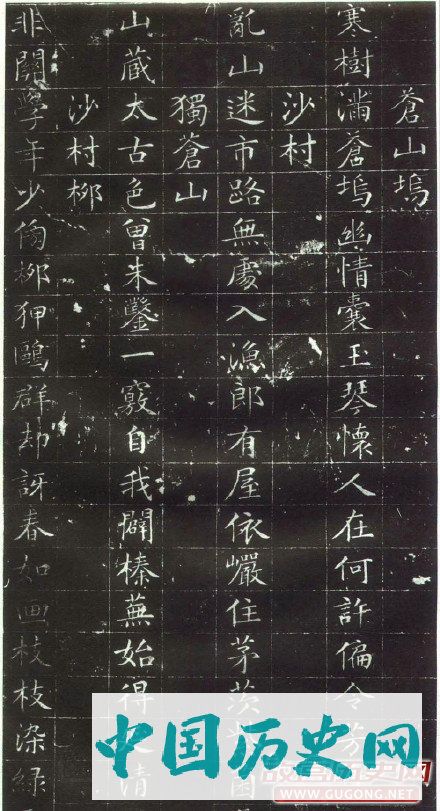 蒼山塢
寒樹滿蒼塢幽情囊玉琴懷人在何許偏令芳
沙村
亂山迷市路無處入漁郎有屋依巖住茅茨
獨蒼山
山蔵太古色曾未鑿一竅自我闢榛蕪始得 清
沙村柳
非關學年少傍柳狎鷗群却訝春如画枝枝染緑
中国历史网
WWW.GUGONG.NET